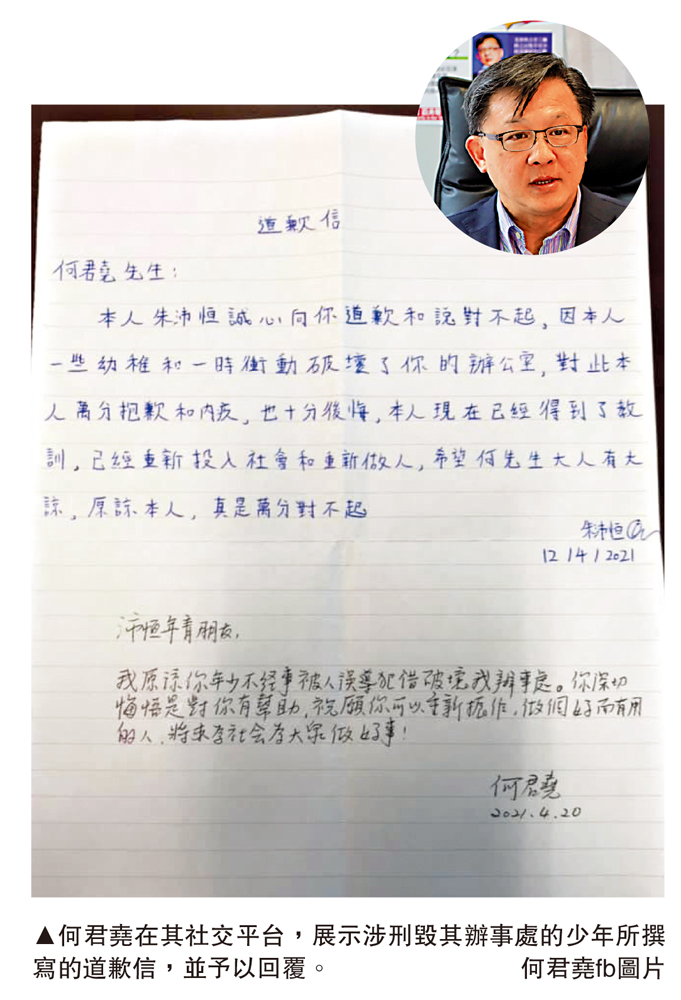 道歉信
何君堯先生：
本人朱沛恒誠心向你道歉和說對不起，因本人
一些幼稚和一時衝動破壞了你的辦公室，對此本
人萬分抱歉和內疚，也十分後悔，本人現在已經得到了教
訓，已經重新投入社會和重新做人，希望何先生大人有大
諒，原諒本人，真是萬分對不起
朱沛恒
12/4/2021
沛恒年青朋友，
我原諒你年少不經事被人誤導犯借破壞我辦事處。你深切
悔悟是對你有幫助，祝願你可以重新振作，做個好而有用
的人，將來為社會為大眾做好事！
何君堯
2021.4.20
▲何君堯在其社交平台，展示涉刑毀其辦事處的少年所撰
寫的道歉信，並予以回覆。 何君堯fb圖片